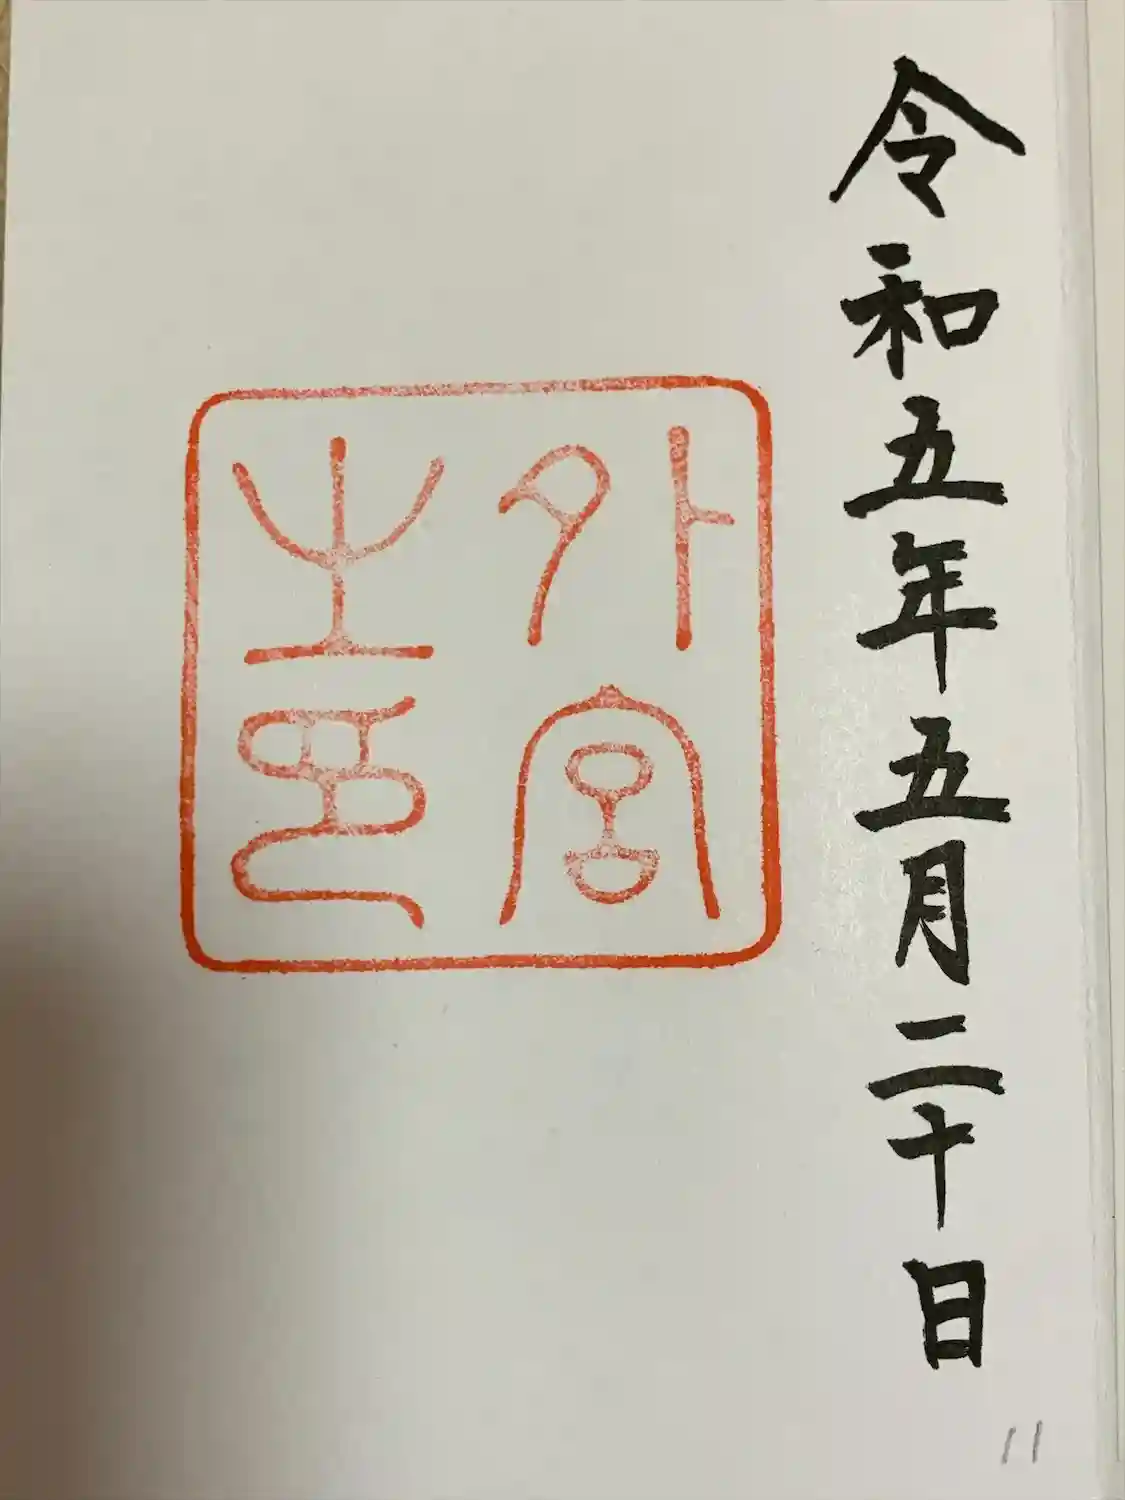 令和五年五月二十日
外宮
之印
11